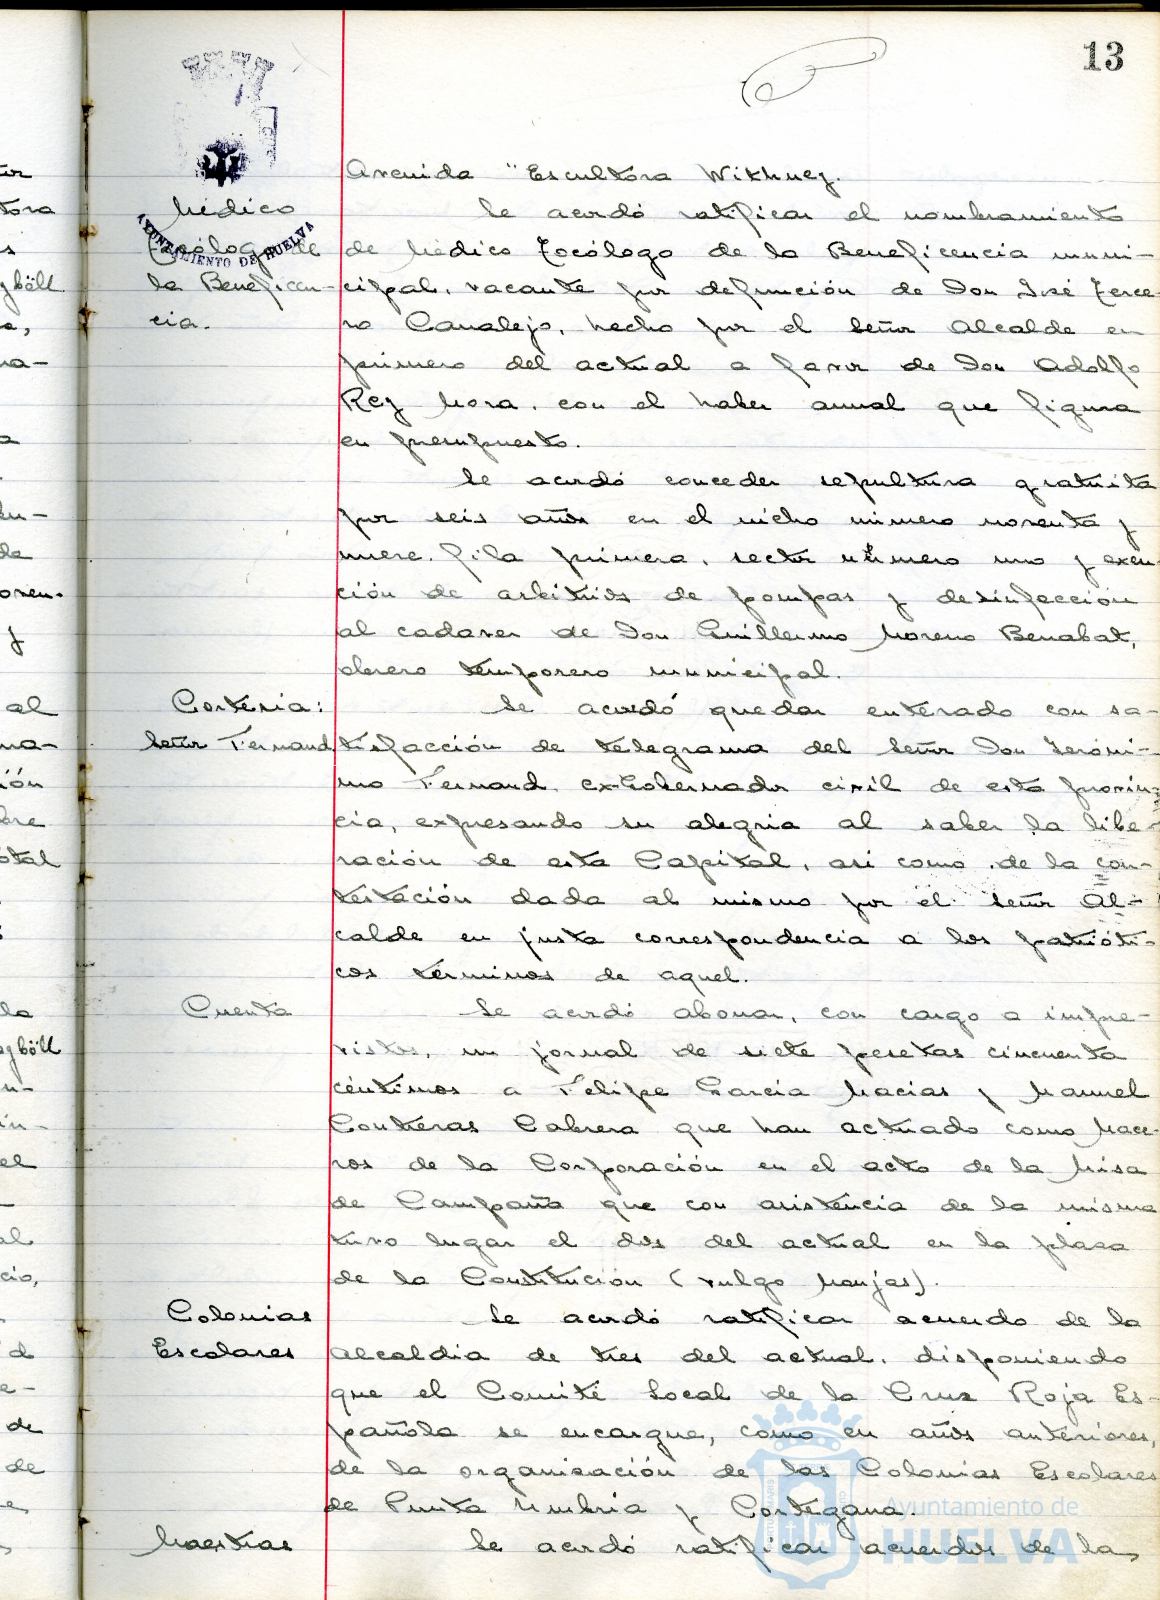 13
AYUNTAMIENTO DE HUELVA
Avenida "Escultora Withney.
Médico
Tocólogo de
la Beneficen-
cia.
Se acordó ratificar el nombramiento
de Médico Tocólogo de la Beneficencia muni-
cipal, vacante por defunción de Don José Terce-
ro Canalejo, hecho por el Señor Alcalde en
primero del actual a favor de Don Adolfo
Rey Mora, con el haber anual que figura
en presupuesto.
Se acordó conceder sepultura gratuita
por seis años en el nicho número noventa y
nueve, fila primera, sector número uno y exen-
ción de arbitrios de pompas y desinfección
al cadaver de Don Guillermo Moreno Benabat,
obrero temporero municipal.
Cortesia:
Señor Fernand
Se acordó quedar enterado con sa-
tisfacción de telegrama del Señor Don Jeróni-
mo Fernand, ex-Gobernador civil de esta provin-
cia, expresando su alegria al saber la libe-
ración de esta Capital, asi como de la con-
testación dada al mismo por el Señor Al-
calde en justa correspondencia a los patrióti-
cos términos de aquel.
Cuenta
Se acordó abonar, con cargo a impre-
vistos, un jornal de siete pesetas cincuenta
céntimos a Felipe Garcia Macias y Manuel
Contreras Cabrera que han actuado como Mace-
ros de la Corporación en el acto de la Misa
de Campaña que con asistencia de la misma
tuvo lugar el dos del actual en la plaza
de la Constitución (vulgo Monjas).
Colonias
Escolares
Se acordó ratificar acuerdo de la
Alcaldia de tres del actual, disponiendo
que el Comité Local de la Cruz Roja Es-
pañola se encargue, como en años anteriores,
de la organización de las Colonias Escolares
de Punta Umbria y Cortegana.
Maestras
Se acordó ratificar acuerdos de la
Ayuntamiento de
HUELVA